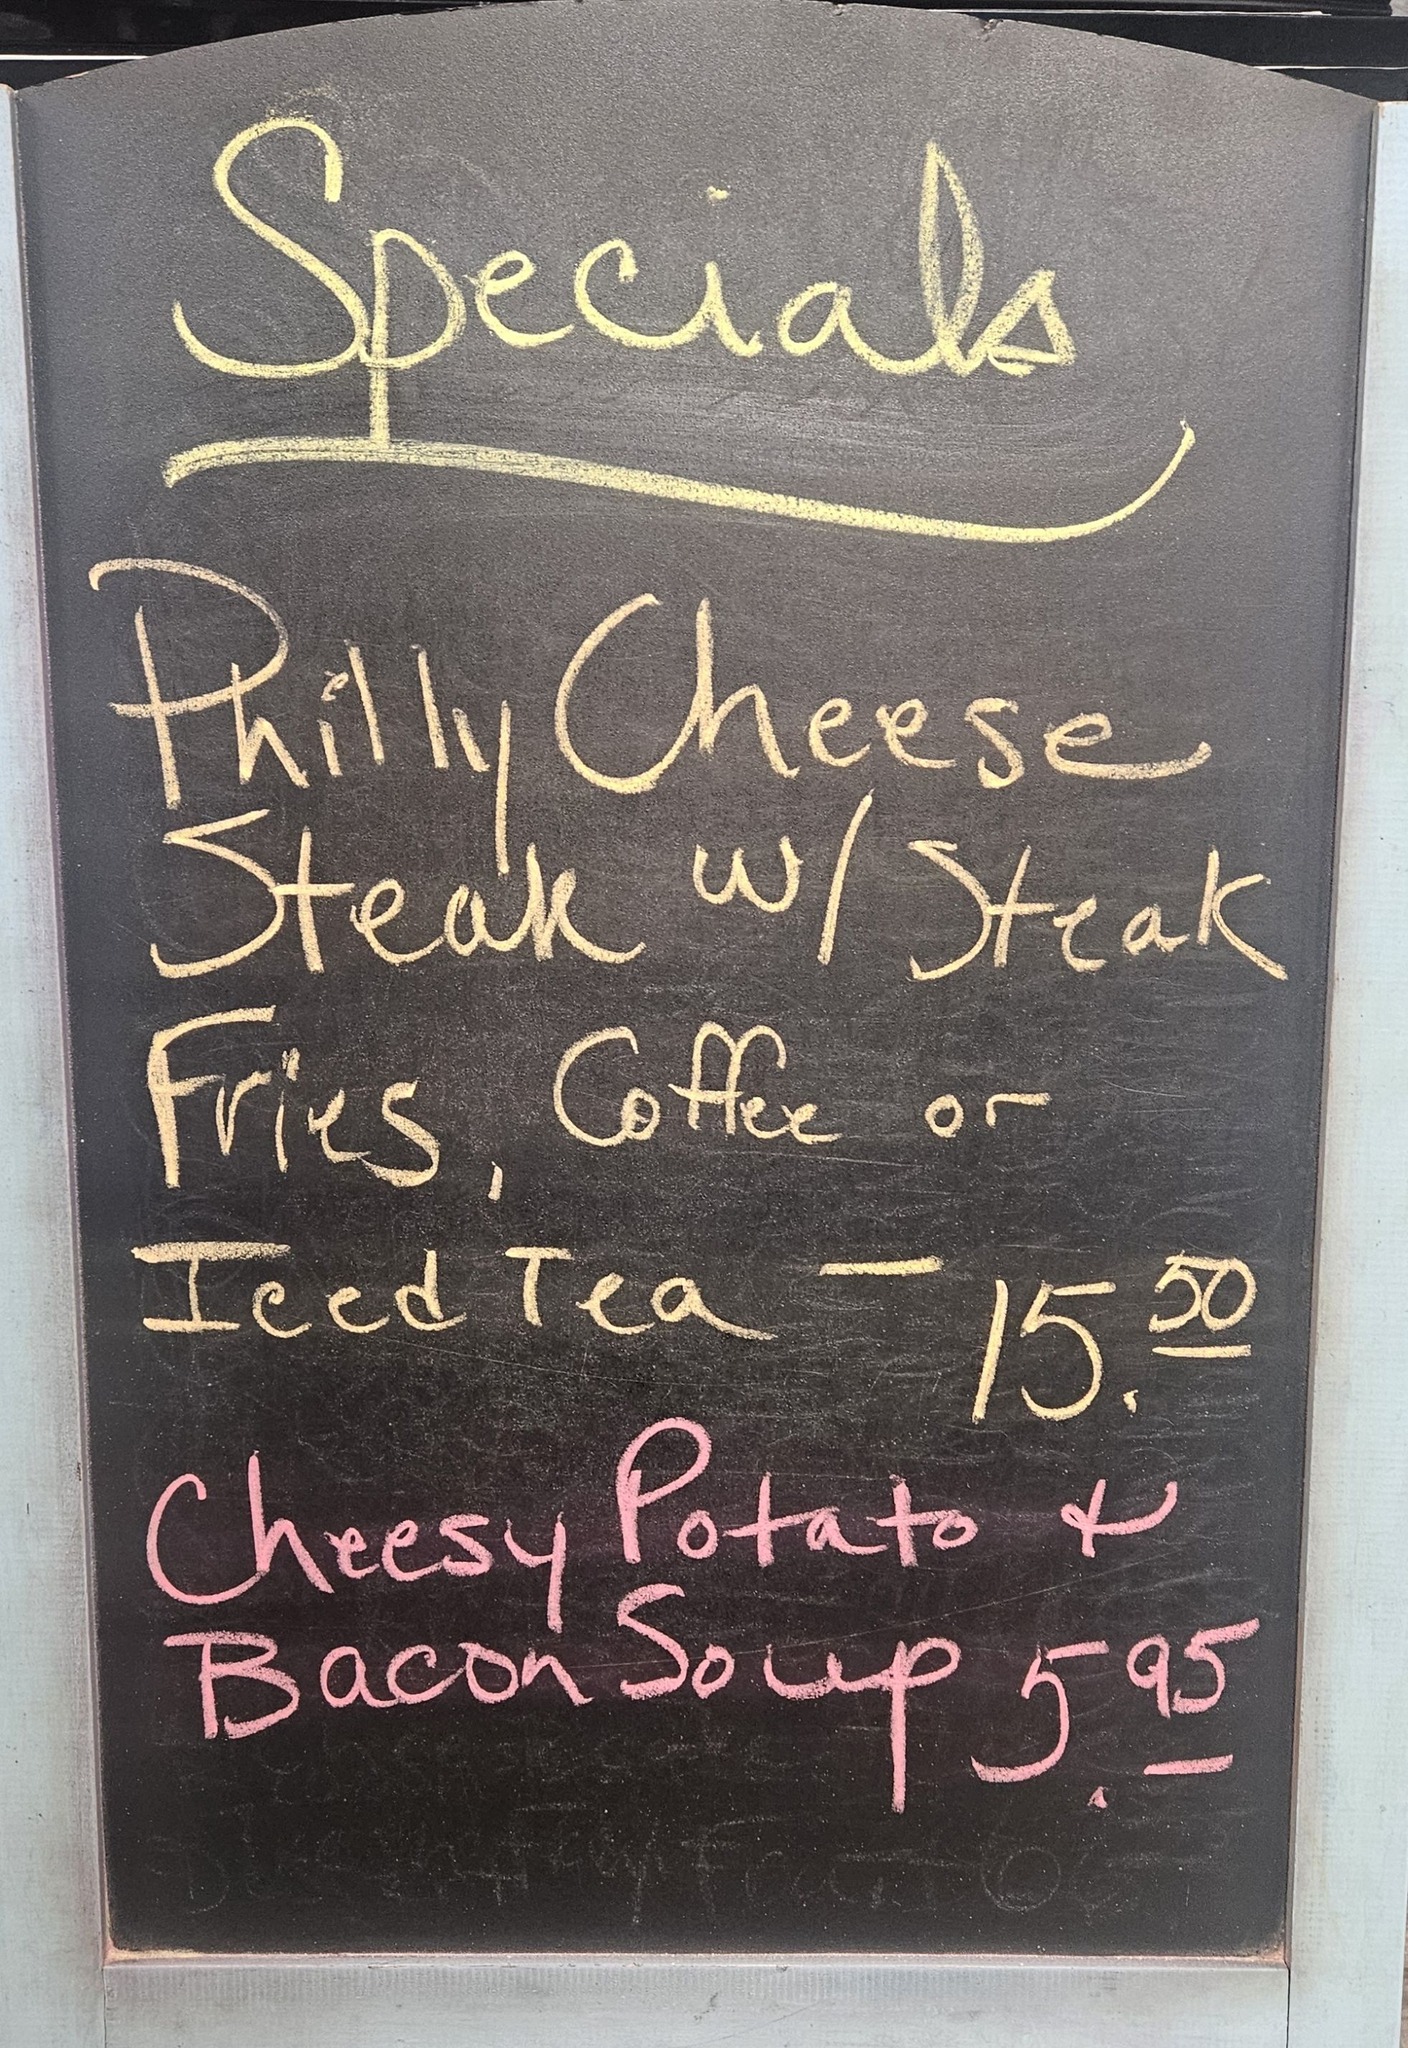 Specials
Philly Cheese
Steak w/ Steak
Fries, Coffee or
Iced Tea — 15.50
Cheesy Potato &
Bacon Soup 5.95